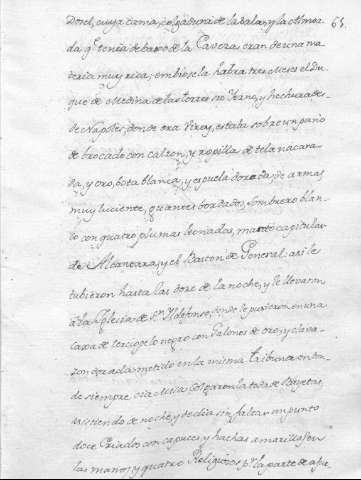 65.
Dosel, cuya cama, colgadura de la Sala, y la Almoa
da q.e tenia debaxo de la Cavera eran de una ma
teria muy rica; embiosela habra tres Meses el Du
que de Medina de las torres su Yerno, y hechura des
de Napoles, donde era Virrey, estaba sobre un paño
de brocado con calzon, y ropilla de tela nacara
da, y oro, bota blanca, y espuela dorada, de armas
muy luciente, guantes bordados, sombrero blan
co con quatro plumas leonadas, manto capitular
de Alcantara, y el Baston de General: asi le
tubieron hasta las doce de la noche, y le llevaron
a la Iglesia de S.n Ildefonso, donde le pusieron en una
caxa de terciopelo negro con Galones de oro, y clava
zon dorada metido en la misma tribuna onde
de siempre oia Misa
asistiendo de noche, y de dia sin faltar un punto
doce Criados con capuces y hachas amarillas en
las manos, y quatro Religiosos p.r la parte de afue